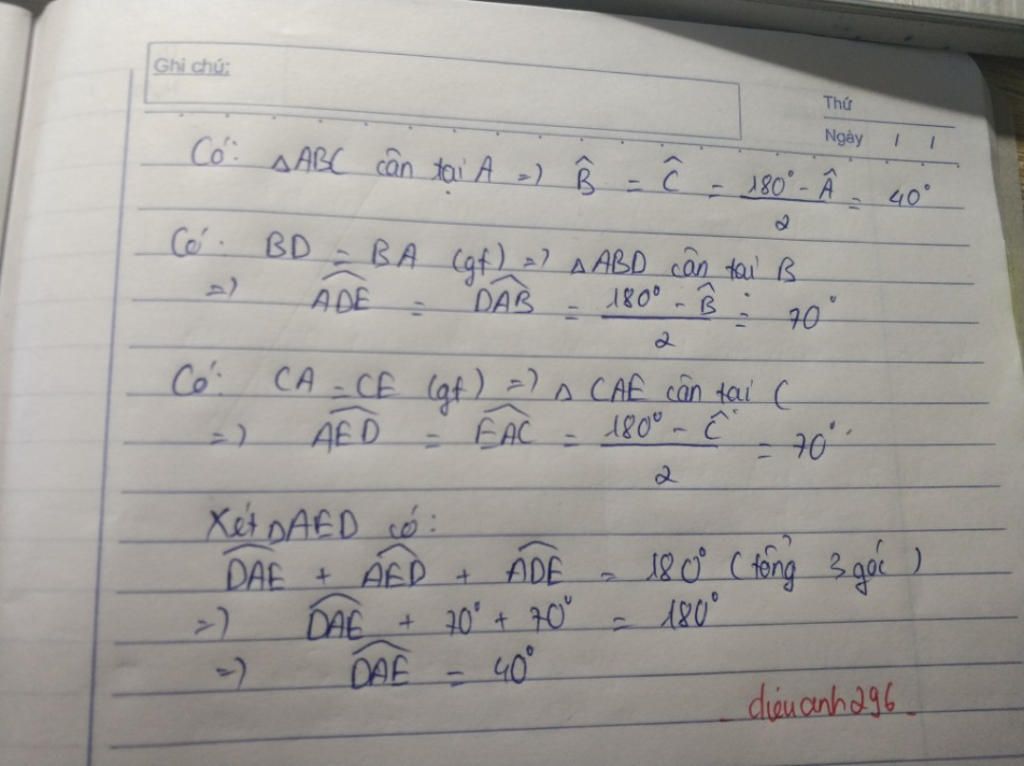 Ghi chú:
Thứ
Ngày / /
Có: △ABC cân tại A => B̂ = Ĉ = (180° - Â)/2 = 40°
Có: BD = BA (gt) => △ABD cân tại B
=> ADE^ = DAB^ = (180° - B̂)/2 = 70°
Có: CA = CE (gt) => △CAE cân tại C
=> AED^ = EAC^ = (180° - Ĉ)/2 = 70°
Xét △AED có:
DAE^ + AED^ + ADE^ = 180° (tổng 3 góc)
=> DAE^ + 70° + 70° = 180°
=> DAE^ = 40°
_ diệuanh296 _